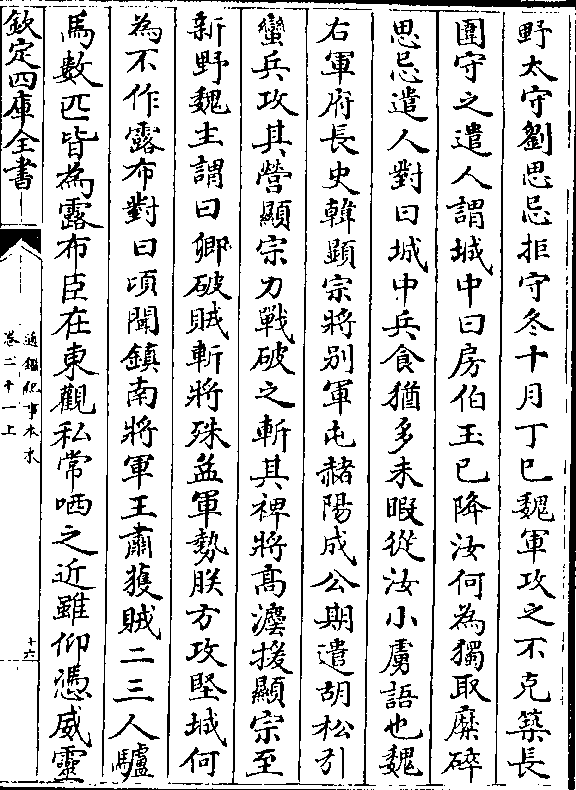 野太守劉思忌拒守冬十月丁巳魏軍攻之不克築長
圍守之遣人謂城中曰房伯玉已降汝何為獨取糜碎
思忌遣人對曰城中兵食猶多未暇從汝小虜語也魏
右軍府長史韓顯宗將别軍屯赭陽成公期遣胡松引
蠻兵攻其營顯宗力戰破之斬其禆將高灋援顯宗至
新野魏主謂曰卿破賊斬將殊益軍勢朕方攻堅城何
為不作露布對曰頃聞鎮南將軍王肅獲賊二三人驢
馬數匹皆為露布臣在東觀私常哂之近雖仰憑威靈
欽定四庫全書
通鑑紀事本末
卷二十一上
十六